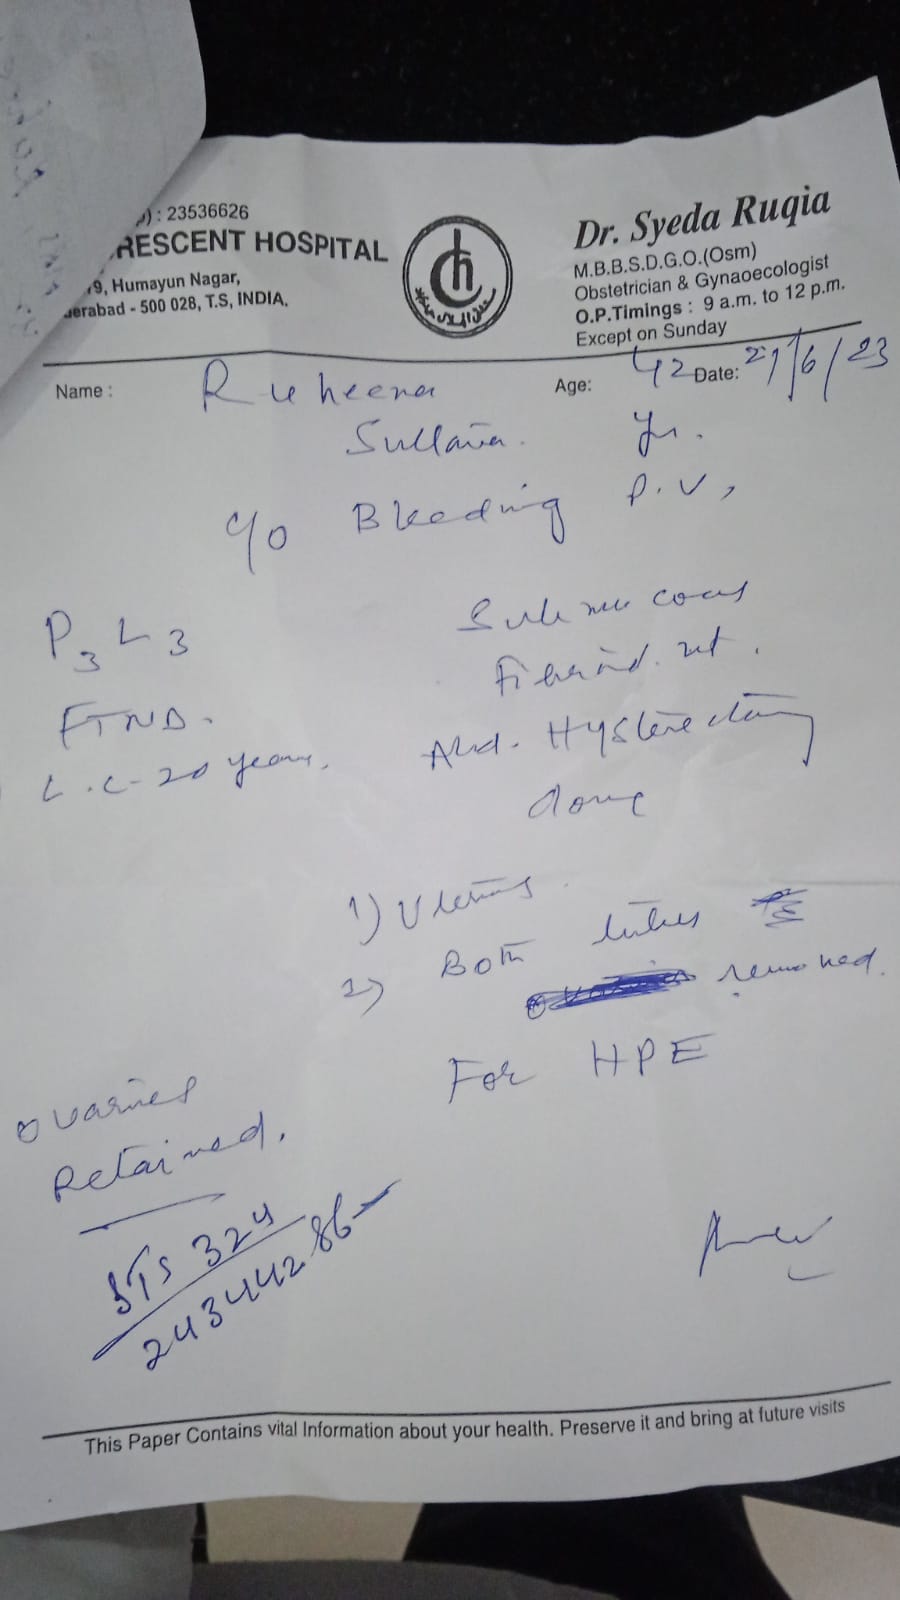 ) : 23536626
RESCENT HOSPITAL
9, Humayun Nagar,
erabad - 500 028, T.S, INDIA.
Dr. Syeda Ruqia
M.B.B.S.D.G.O.(Osm)
Obstetrician & Gynaoecologist
O.P.Timings : 9 a.m. to 12 p.m.
Except on Sunday
Name : Ruheena Age: 42 Date: 27/6/23
Sultana. yr.
c/o Bleeding P.V,
P3L3
FTND.
L.C-20 years.
Submucous
Fibroid. ut.
Abd. Hysterectomy
done
1) Uterus.
2) Both tubes
removed.
For HPE
ovaries
Retained.
STS 324
24344286
This Paper Contains vital Information about your health. Preserve it and bring at future visits